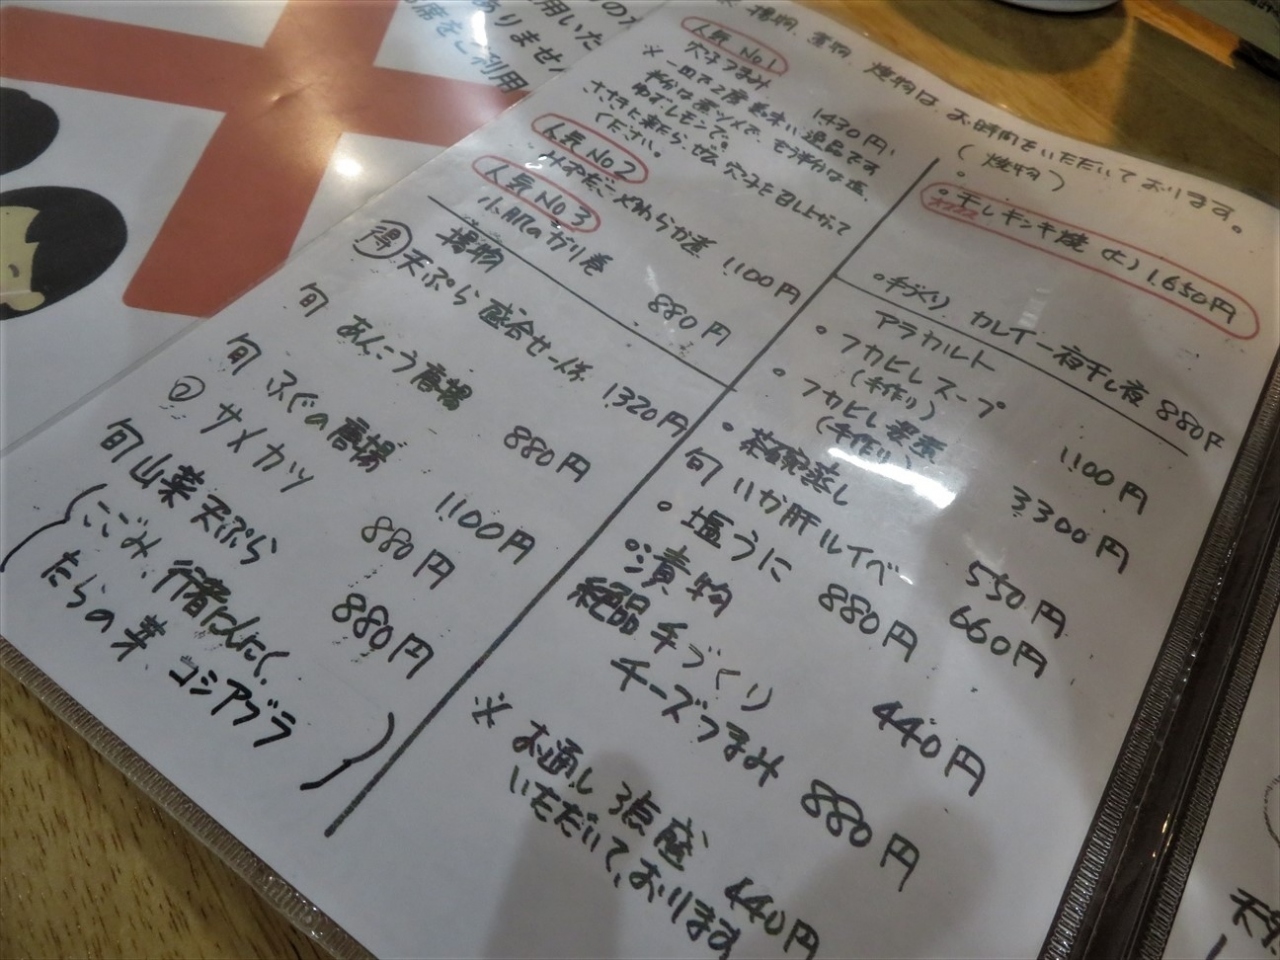 揚物、煮物、焼物は、お時間をいただいております。
人気 No1
穴子つまみ 1430円
※一皿で2度美味しい逸品です
半分は煮ツメで、もう半分は塩、
ゆず、レモンで。
さささに来たら、ぜひ穴子を召し上がって
ください。
人気 No2
みずだこやわらか煮 1,100円
人気 No3
小肌のガリ巻 880円
揚物
得 天ぷら盛合せ一人前 1320円
旬 あんこう唐揚 880円
旬 ふぐの唐揚 1,100円
サメカツ 880円
旬 山菜天ぷら 880円
(こごみ、行者にんにく、
たらの芽、コシアブラ)
(焼物)
干しキンキ焼 (大) 1,650円
オススメ
手づくり カレイ一夜干し 880円
アラカルト
フカヒレスープ 1,100円
(手作り)
フカヒレ姿煮 3300円
(手作り)
茶碗蒸し 550円
旬 いか肝ルイベ 660円
塩うに 880円
漬物 440円
絶品 手づくり
チーズつまみ 880円
※お通し 440円
いただいております